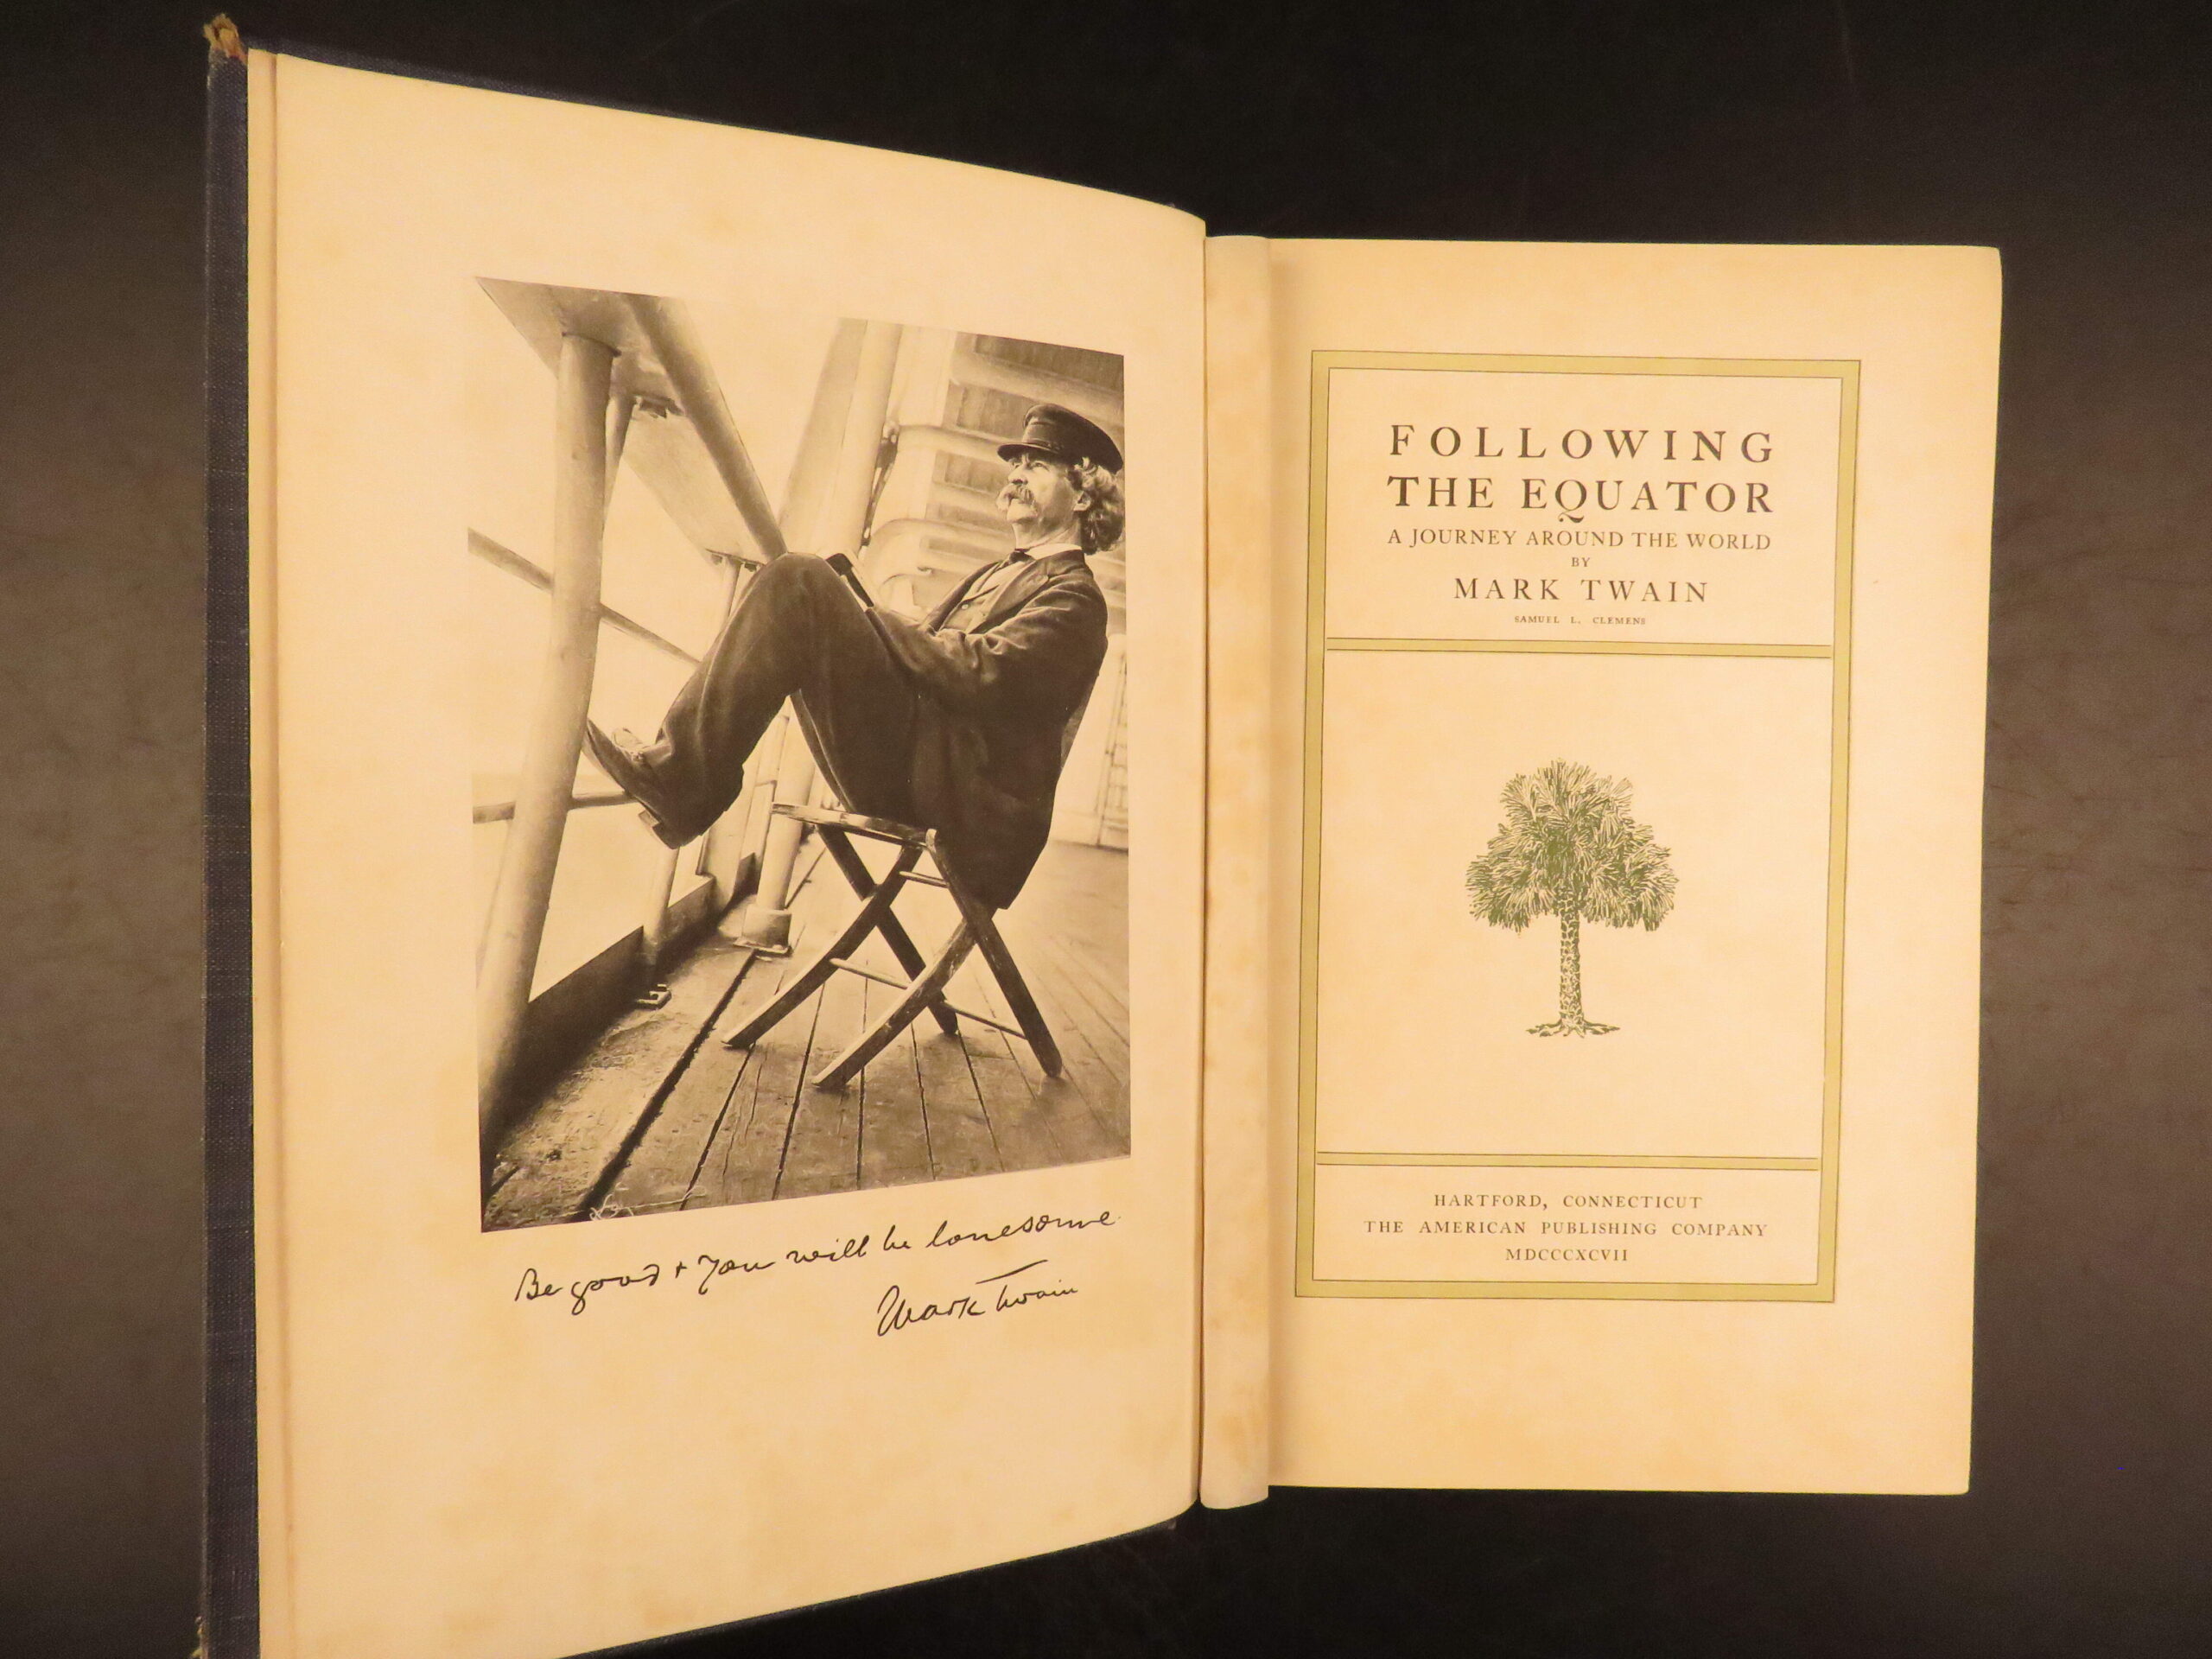 Be good + you will be lonesome
Mark Twain
FOLLOWING
THE EQUATOR
A JOURNEY AROUND THE WORLD
BY
MARK TWAIN
SAMUEL L. CLEMENS
HARTFORD, CONNECTICUT
THE AMERICAN PUBLISHING COMPANY
MDCCCXCVII